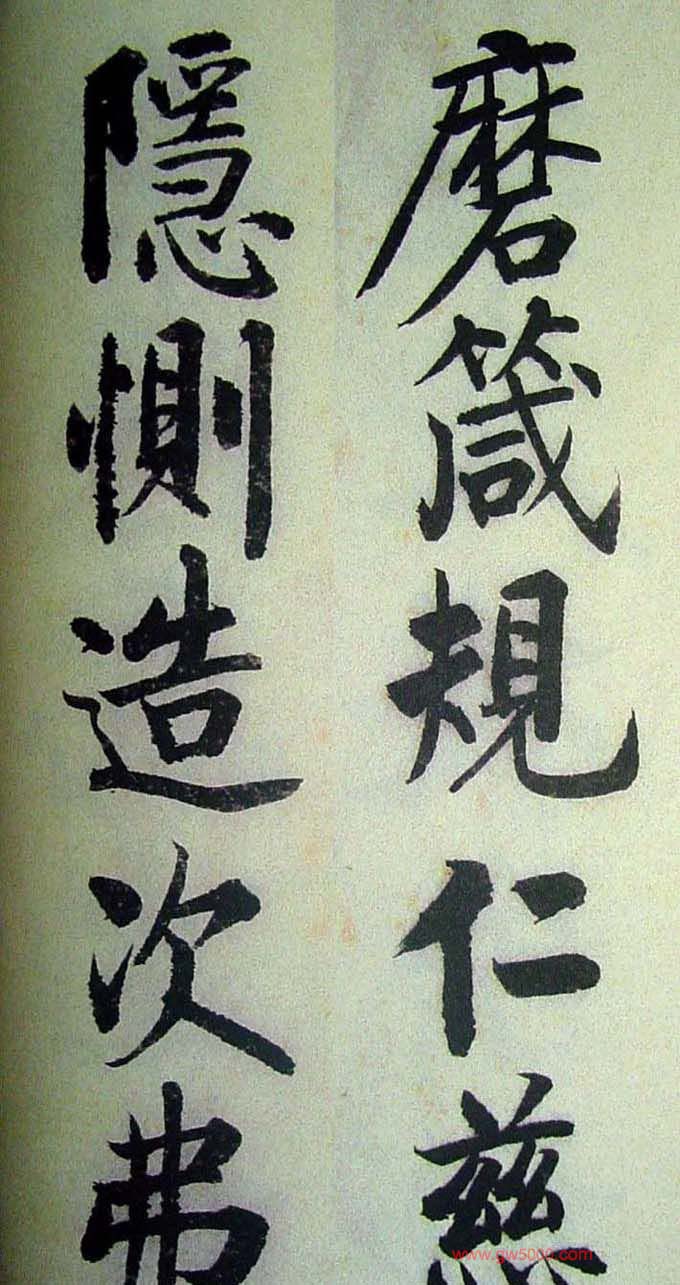 磨箴規仁慈
隱惻造次弗
www.gw5000.com